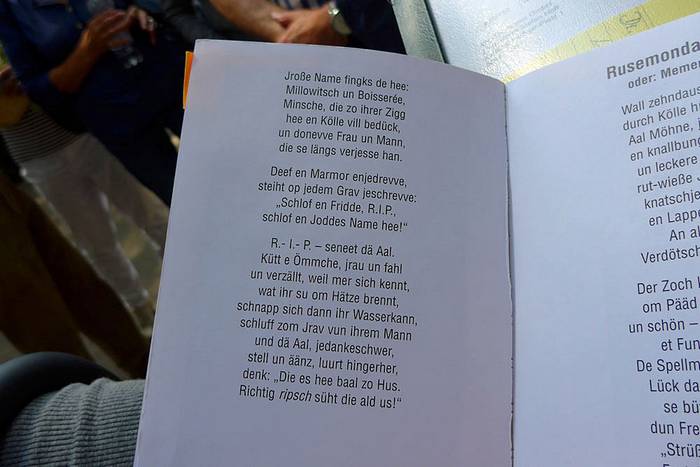 Jroße Name fingks de hee:
Millowitsch un Boisserée,
Minsche, die zo ihrer Zigg
hee en Kölle vill bedück,
un donevve Frau un Mann,
die se längs verjesse han.
Deef en Marmor enjedrevve,
steiht op jedem Grav jeschrevve:
„Schlof en Fridde, R.I.P.,
schlof en Joddes Name hee!“
R.- I.- P. – seneet dä Aal.
Kütt e Ömmche, jrau un fahl
un verzällt, weil mer sich kennt,
wat ihr su om Hätze brennt,
schnapp sich dann ihr Wasserkann,
schluff zom Jrav vun ihrem Mann
und dä Aal, jedankeschwer,
stell un äänz, luurt hingerher,
denk: „Die es hee baal zo Hus.
Richtig ripsch süht die ald us!“
Rusemonda
oder: Memen
Wall zehndaus
durch Kölle h
Aal Möhne, j
en knallbung
un leckere
rut-wieße J
knatschje
en Lappe
An al
Verdötsch
Der Zoch
om Pääd
un schön –
et Fun
De Spellm
Lück da
se bü
dun Fre
„Strüß